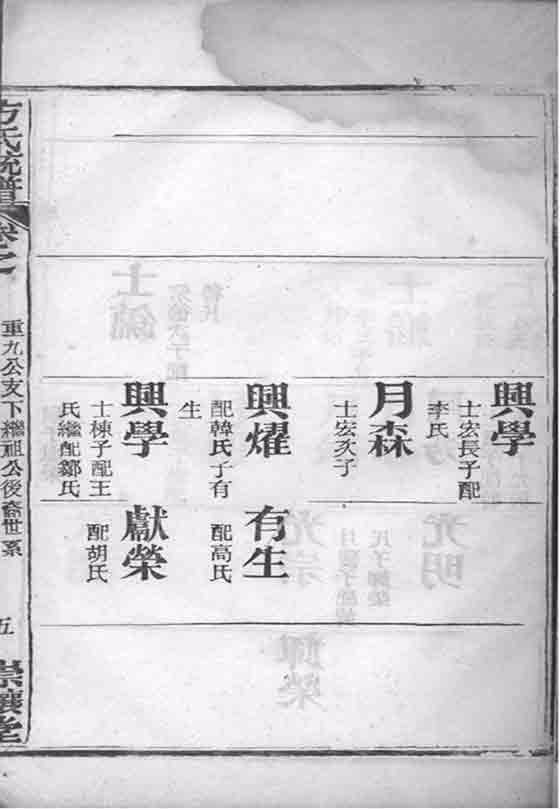 興學
士宏長子配
李氏
月森
士宏次子
興燿
配韓氏子有
生
興學
士棟子配王
氏繼配鄒氏
有生
配高氏
獻榮
配胡氏
方氏統譜
卷之
重九公支下繼祖公後裔世系
五
崇讓堂